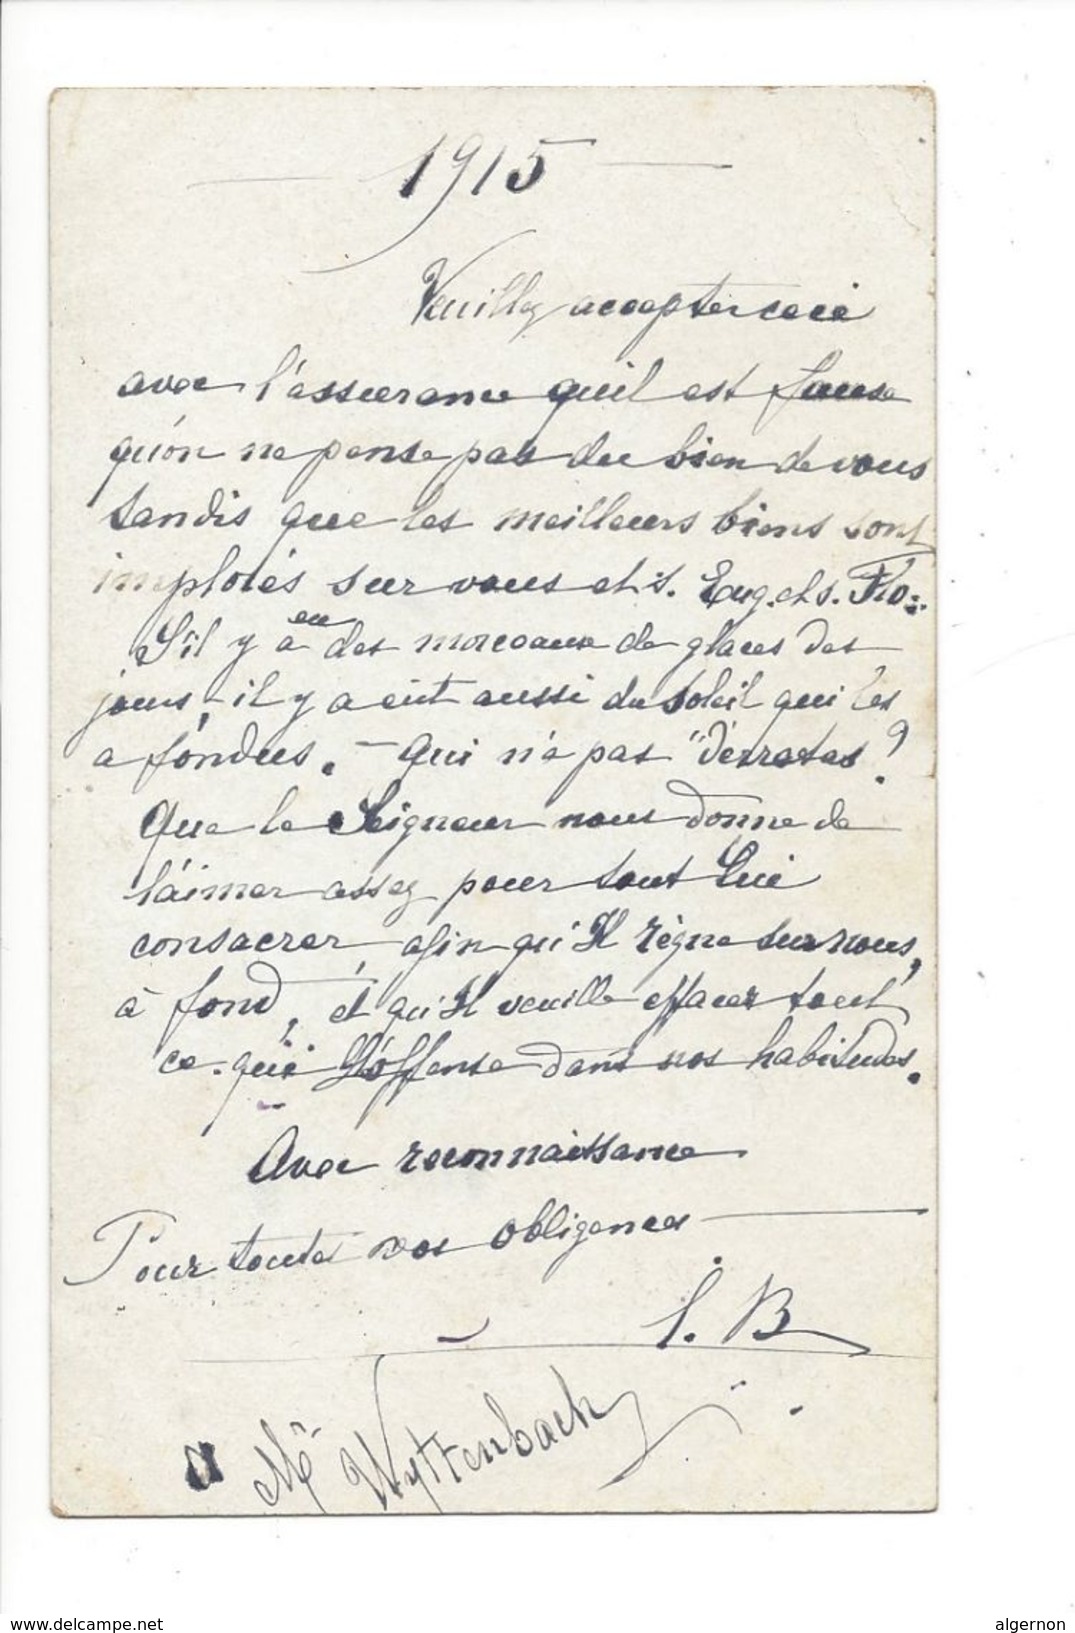 1915
Veuillez accepter ceci
avec l'assurance qu'il est fausse
qu'on ne pense pas du bien de vous
tandis que les meilleurs biens sont
implorés sur vous et s. Eug. et s. Flo:.
S'il y a eu des morceaux de glaces des
jours, il y a eût aussi du soleil qui les
a fondues. - Qui n'a pas "d'erratas"?
Que le Seigneur nous donne de
l'aimer assez pour tout Lui
consacrer, afin qu'Il règne sur nous,
à fond, et qu'Il veuille effacer tout
ce qui L'offense dans nos habitudes.
Avec reconnaissance
Pour toutes vos obligences
B
a Mr Wyttenbach
www.delcampe.net
algernon